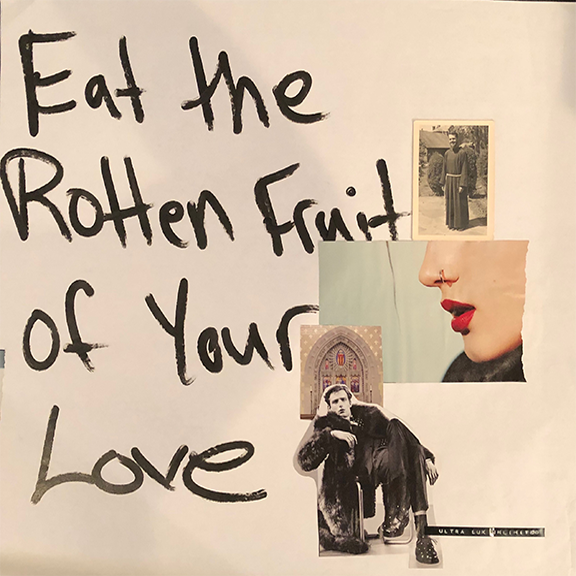 Eat the
Rotten Fruit
of Your
Love
ULTRA LUX